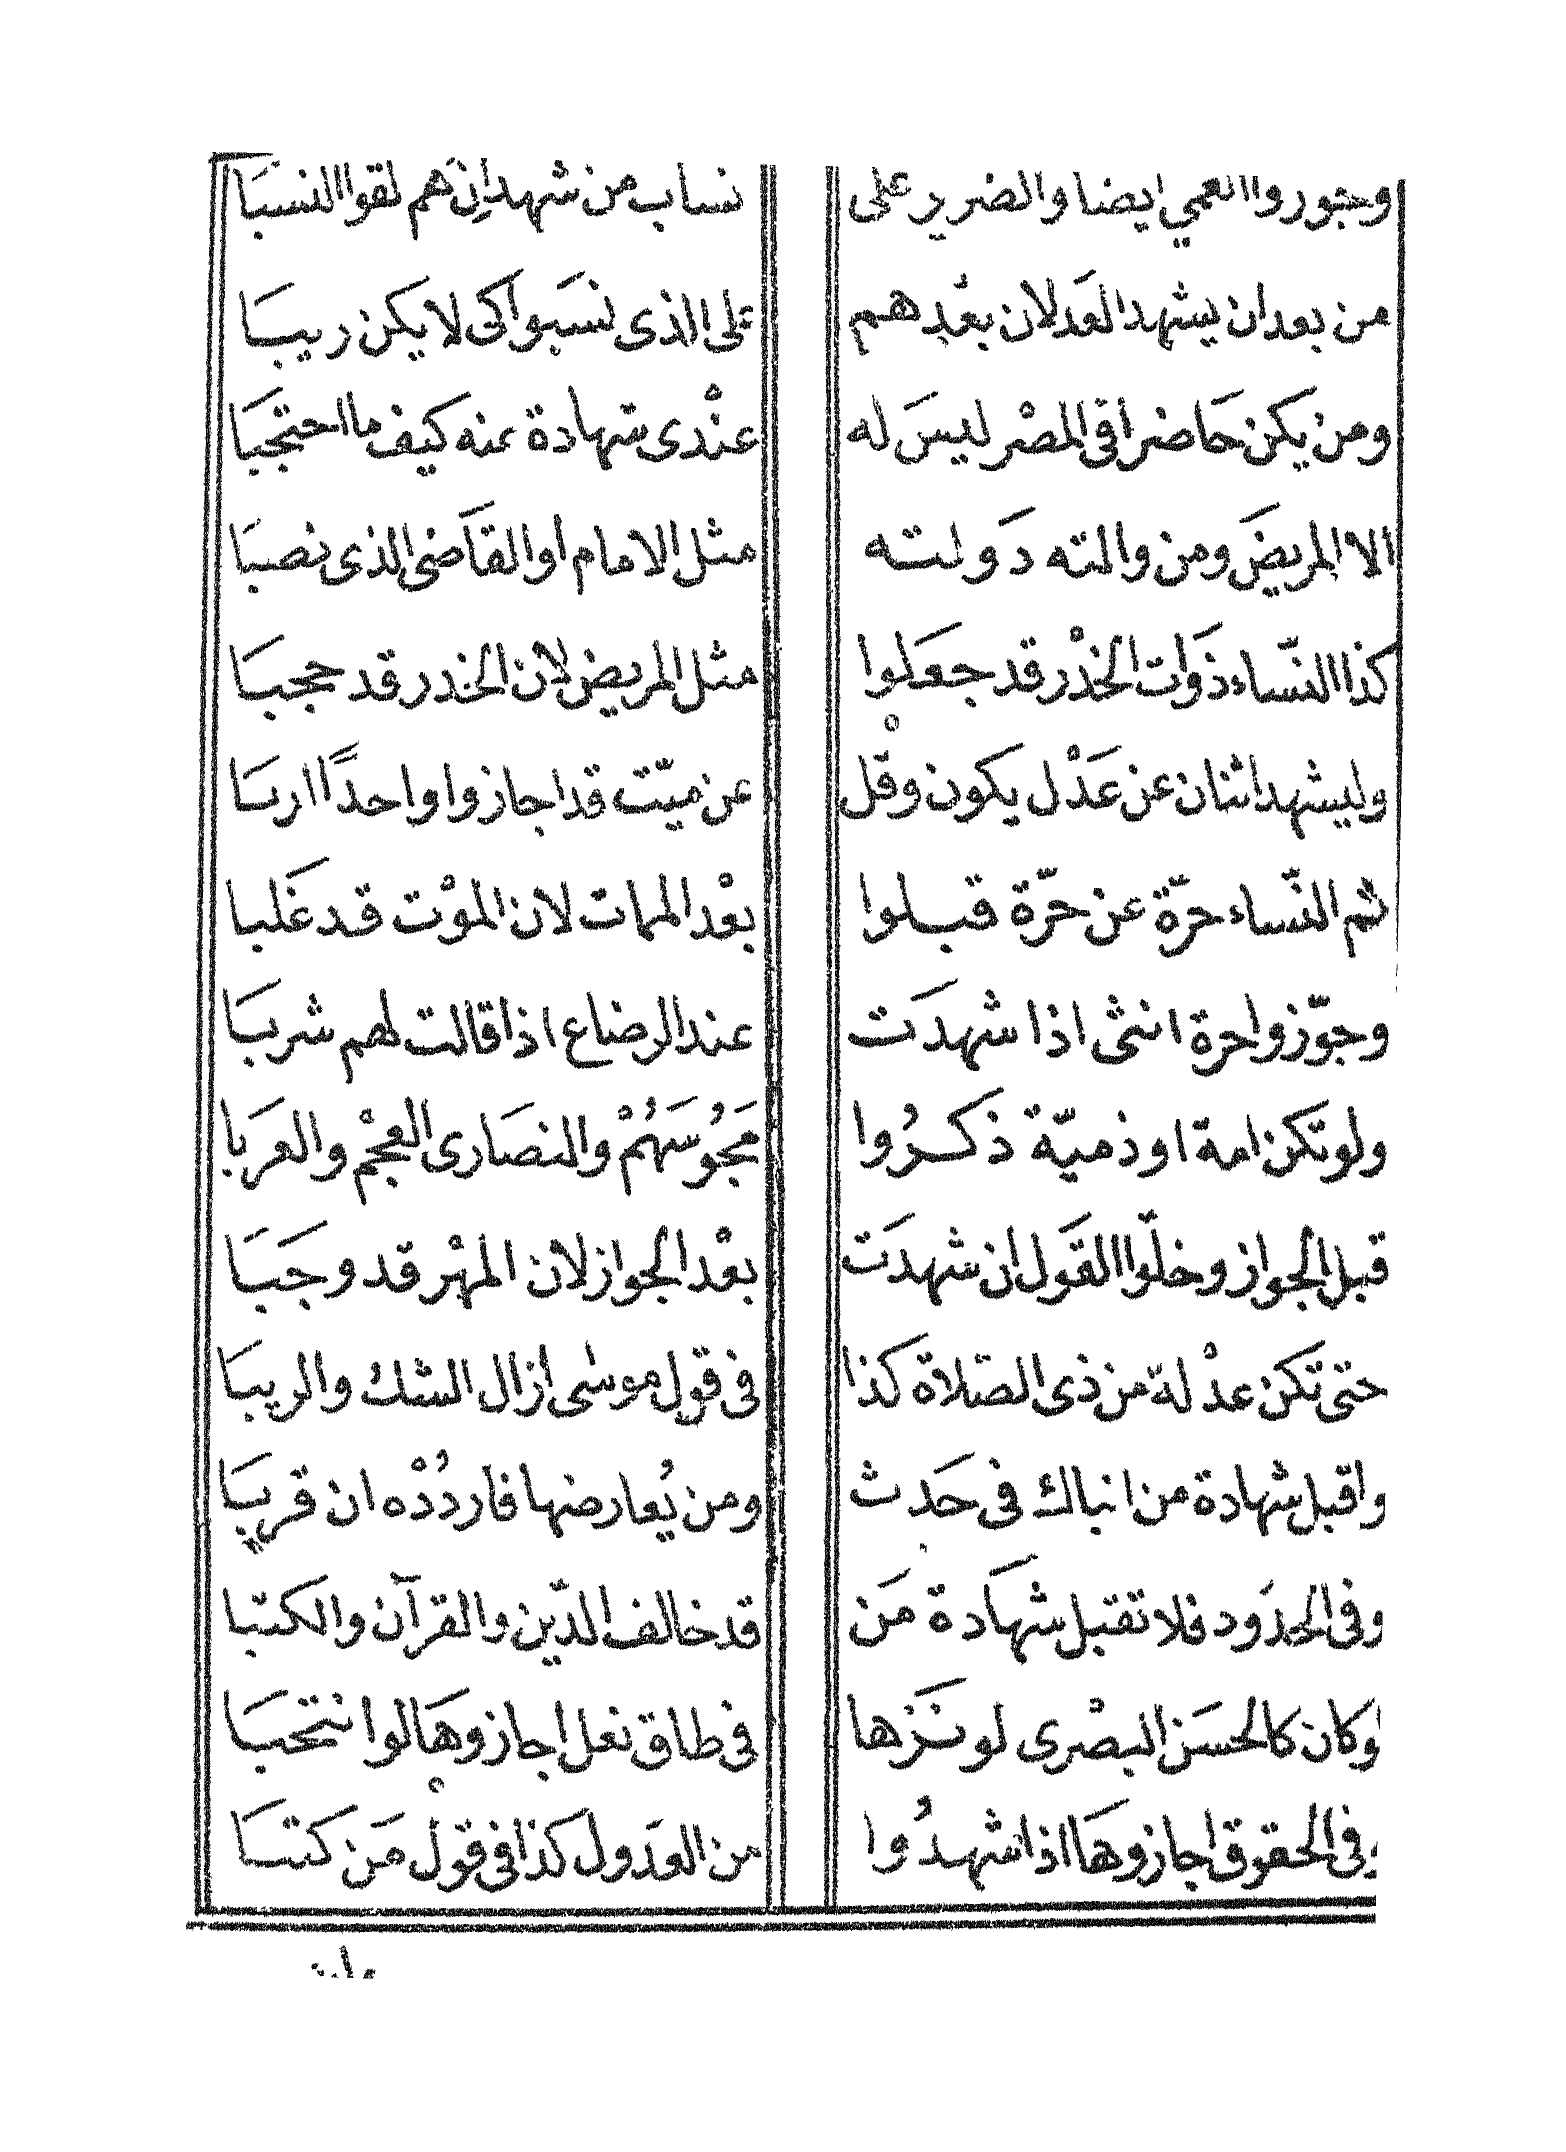 وجوروا العمي ايضا والضرير على نساب من شهدا ان هم لقوا النسبا
من بعد ان يشهد العدلان بعدهم على الذى نسبوا كى لا يكن ريبا
ومن يكن حَاضرا فى المصْر ليسَ له عنْدى شهادة عنه كيف ما احتجبا
الا المريضَ ومن والته دَولته مثل الامام او القاَضى الذى نصبا
كذا النّساء ذوَات الخدْر قد جعَلوا مثل المريض لان الخدر قد حجبَا
وليشهد اثنان عن عَدْل يكون وقلْ عن ميّت قد اجازوا واحدًا اربَا
ثم النّساء حرّة عن حرّة قبلوا بعْد الممات لان الموْت قد غَلبا
وجوّزوا حرة انثى اذا شهدَت عند الرضاع اذا قالت لهم شربَا
ولو تكن امة او ذميّة ذكَرُوا مَجُوسَهُمْ والنصَارى العجْم والعرَبا
قبل الجواز وخلّوا القَول ان شهدَت بعْد الجواز لان المهْر قد وجَبَا
حتى تكن عدْلة من ذى الصّلاة كذا فى قول موسى ازال الشك والريبَا
واقبل شهادة من انباك فى حَدث ومن يُعارضها فاردُدْه ان قربَا
وفى الحدَود فلا تقبل شهاَدة مَن قد خالف الدّين والقرآن والكتبا
وكان كالحسَن البصْرى لو نَزها فى طاق نعل اجازوهَا لوْا نتحبَا
وفى الحقوق اجازوهَا اذا شهدُوا من العدَول كذا فى قول مَن كتبَا